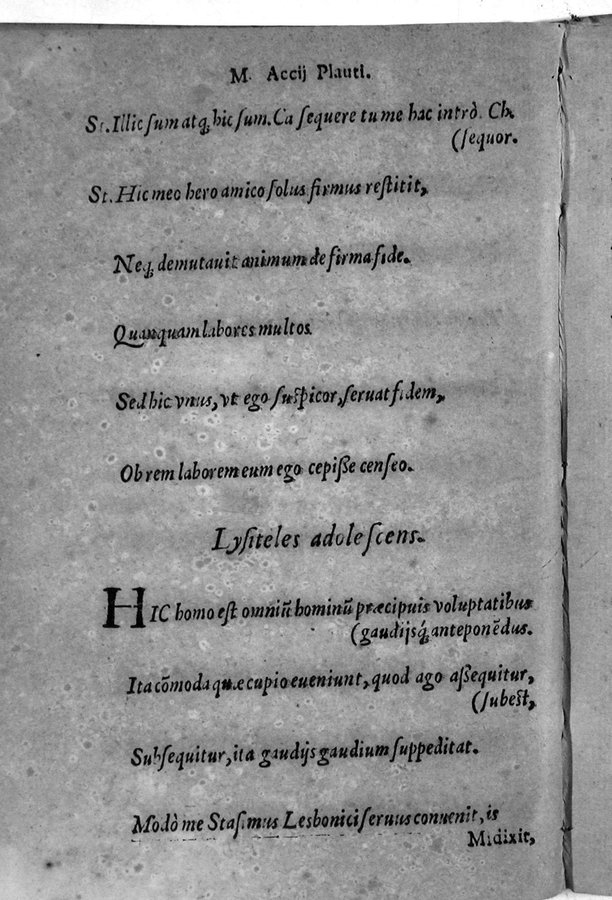 M. Accij Plauti.
St. Illic sum atq; hic sum. Ea sequere tu me hac intrò. Ch.
(sequor.
St. Hic meo hero amico solus firmus restitit,
Neq; demutauit animum de firma fide.
Quanquam labores multos
Sed hic vnus, vt ego suspicor, seruat fidem,
Ob rem laborem eum ego cepisse censeo.
Lysiteles adolescens.
HIC homo est omniũ hominũ præcipuis voluptatibus
(gaudijsq́; anteponẽdus.
Ita cõmoda quæ cupio eueniunt, quod ago assequitur,
(subest,
Subsequitur, ita gaudijs gaudium suppeditat.
Modò me Stasimus Lesbonici seruus conuenit, is
Mi dixit,